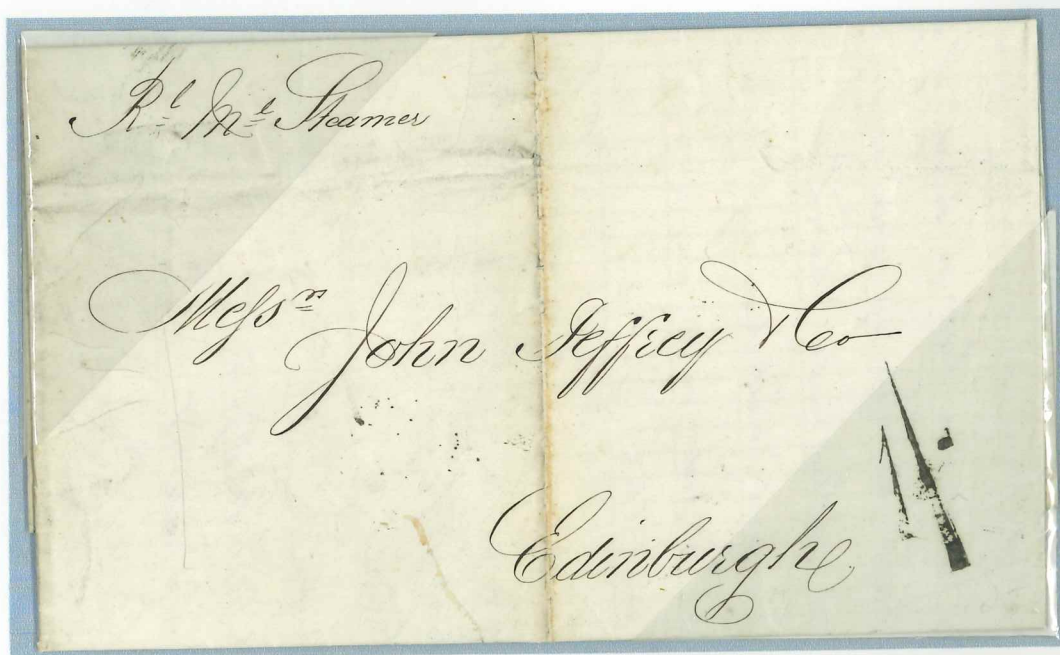 Rl Ml Steamer
Messrs John Jeffrey & Co
Edinburgh